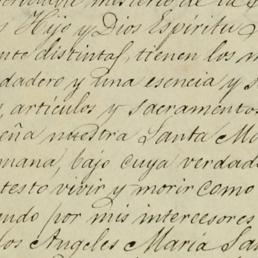 misterio de la
Hijo y Dios Espiritu
distintas, tienen los
y una esencia y
articulos y sacramentos
nuestra Santa
bajo cuya
vivir y morir como
por mis intercesores
los Angeles Maria